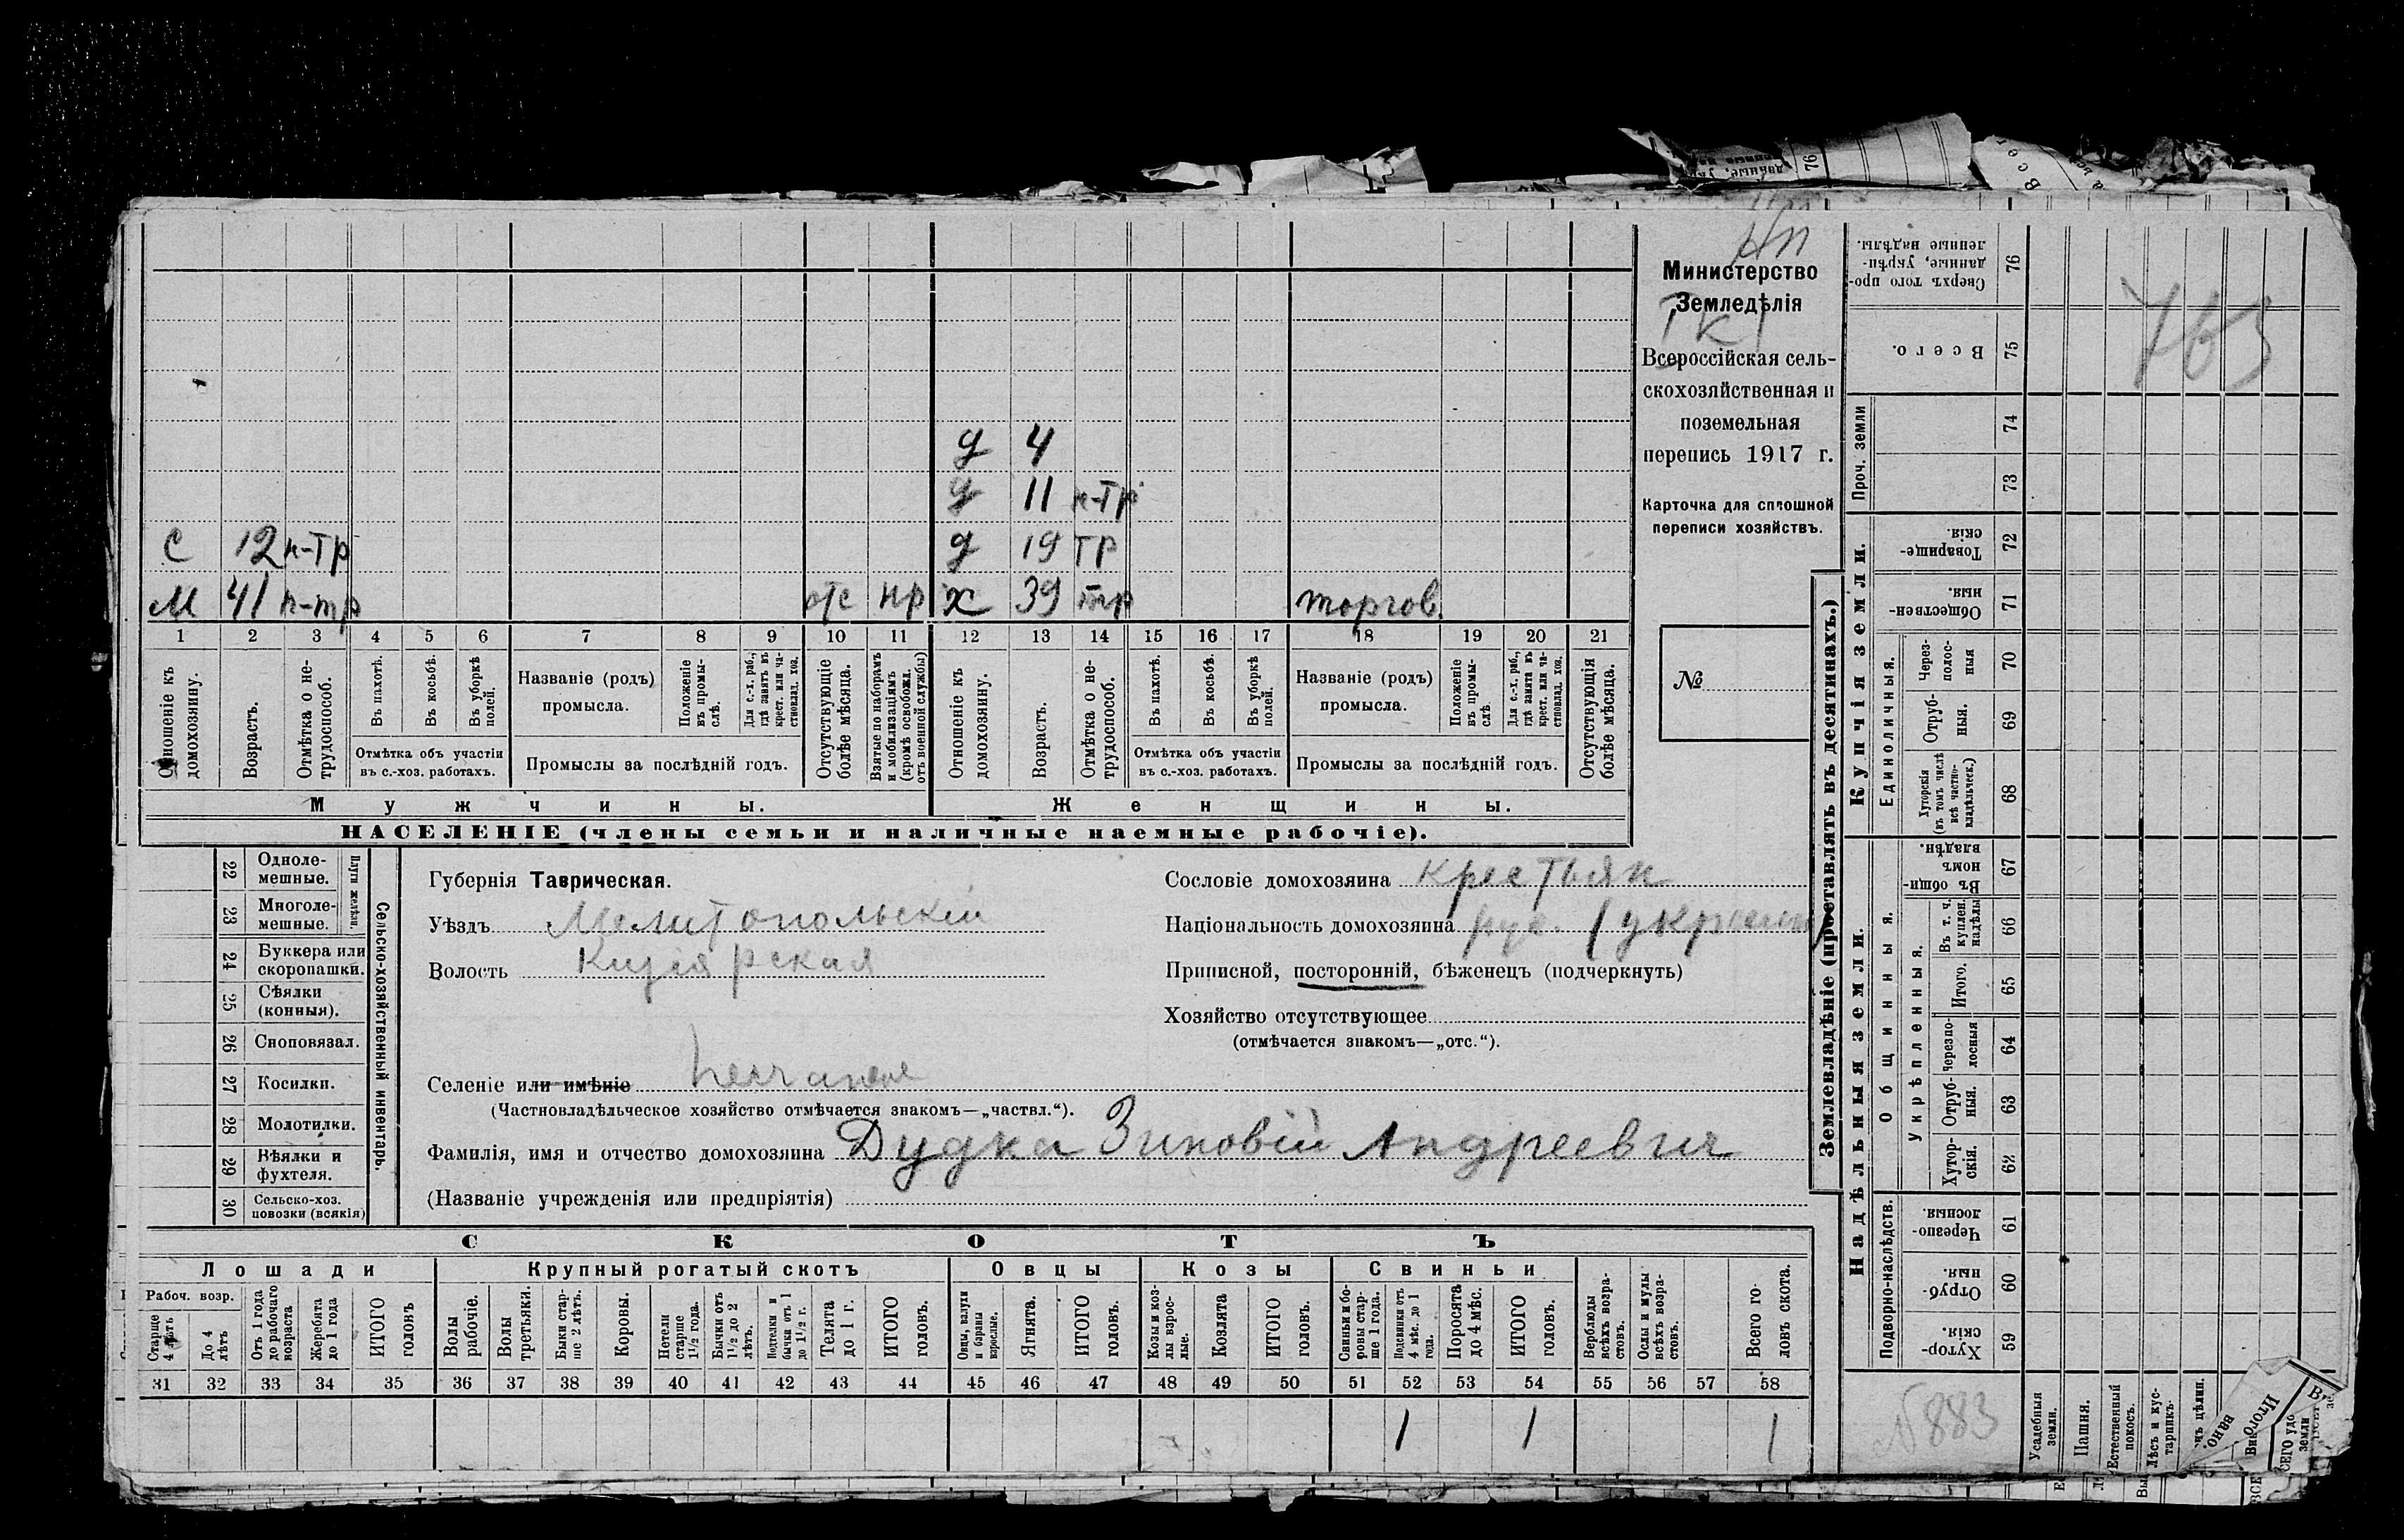 Нп
Министерство
Земледѣлія
Всероссійская сель-
скохозяйственная и
поземельная
перепись 1917 г.
Карточка для сплошной
переписи хозяйствъ.
№
д 4
д 11 н-тр
с 12 н-тр
д 19 тр
м 41 н-тр отс нр
х 39 тр торгов.
1 2 3 4 5 6 7 8 9 10 11 12 13 14 15 16 17 18 19 20 21
Отношеніе къ домохозяину.
Возрастъ.
Отмѣтка о не-трудоспособ.
Въ пахотѣ.
Въ косьбѣ.
Въ уборкѣ полей.
Отмѣтка объ участіи
въ с.-хоз. работахъ.
Названіе (родъ)
промысла.
Положеніе въ промы-слѣ.
Для с.-х. раб., гдѣ занятъ въ крест. или ча-стновлад. хоз.
Промыслы за послѣдній годъ.
Отсутствующіе болѣе мѣсяца.
Взятые по наборамъ и мобилизаціямъ (кромѣ освобожд. отъ военной службы)
Отношеніе къ домохозяину.
Возрастъ.
Отмѣтка о не-трудоспособ.
Въ пахотѣ.
Въ косьбѣ.
Въ уборкѣ полей.
Отмѣтка объ участіи
въ с.-хоз. работахъ.
Названіе (родъ)
промысла.
Положеніе въ промы-слѣ.
Для с.-х. раб., гдѣ занята въ крест. или ча-стновлад. хоз.
Промыслы за послѣдній годъ.
Отсутствующія болѣе мѣсяца.
Мужчины.
Женщины.
НАСЕЛЕНІЕ (члены семьи и наличные наемные рабочіе).
Сельско-хозяйственный инвентарь.
Плуги желѣзн.
22 Одноле-мешные.
23 Многоле-мешные.
24 Буккера или скоропашки.
25 Сѣялки (конныя).
26 Сноповязал.
27 Косилки.
28 Молотилки.
29 Вѣялки и фухтеля.
30 Сельско-хоз. повозки (всякія)
Губернія Таврическая.
Уѣздъ Мелитопольскій
Волость Кизіярская
Сословіе домохозяина крестьян
Національность домохозяина рус. (украин)
Приписной, посторонній, бѣженецъ (подчеркнуть)
Хозяйство отсутствующее
(отмѣчается знакомъ—„отс.“).
Селеніе или имѣніе Песчаное
(Частновладѣльческое хозяйство отмѣчается знакомъ—„частвл.“).
Фамилія, имя и отчество домохозяина Дудка Зиновій Андреевич
(Названіе учрежденія или предпріятія)
СКОТЪ
Лошади
Крупный рогатый скотъ
Овцы
Козы
Свиньи
Рабоч. возр.
Старше 4 лѣтъ
До 4 лѣтъ
Отъ 1 года до рабочаго возраста
Жеребята до 1 года
ИТОГО головъ
Волы рабочіе.
Волы третьяки.
Быки стар-ше 2 лѣтъ.
Коровы.
Нетели старше 1½ года.
Бычки отъ 1½ до 2 лѣтъ.
Подтелки и бычки отъ 1 до 1½ г.
Телята до 1 г.
ИТОГО головъ.
Овцы, валухи и бараны взрослые.
Ягнята.
ИТОГО головъ.
Козы и коз-лы взрос-лые.
Козлята
ИТОГО головъ.
Свиньи и бо-ровы стар-ше 1 года.
Подсвинки отъ 4 мѣс. до 1 года.
Поросята до 4 мѣс.
ИТОГО головъ.
Верблюды всѣхъ возра-стовъ.
Ослы и мулы всѣхъ возра-стовъ.
Всего го-ловъ скота.
31 32 33 34 35 36 37 38 39 40 41 42 43 44 45 46 47 48 49 50 51 52 53 54 55 56 57 58
1 1 1
Землевладѣніе (проставлять въ десятинахъ.)
Сверхъ того про-данные, укрѣп-ленные надѣлы. 76
Всего. 75
Проч. земли
74
73
Купчія земли.
Товарище-скія 72
Обществен-ныя. 71
Единоличныя.
Через-полос-ныя 70
Отруб-ныя. 69
Хуторскія (въ томъ числѣ всѣ частно-владѣльческ.) 68
Надѣльныя земли.
Общинныя.
Въ общин-номъ владѣн. 67
Укрѣпленныя.
Въ т. ч. куплен. надѣлы 66
Итого. 65
Черезпо-лосныя 64
Отруб-ныя. 63
Хутор-скія. 62
Подворно-наслѣдств.
Черезпо-лосныя. 61
Отруб-ныя. 60
Хутор-скія. 59
763
№ 883
Усадебныя земли.
Пашня.
Естественный покосъ.
Лѣсъ и кус-тарникъ.